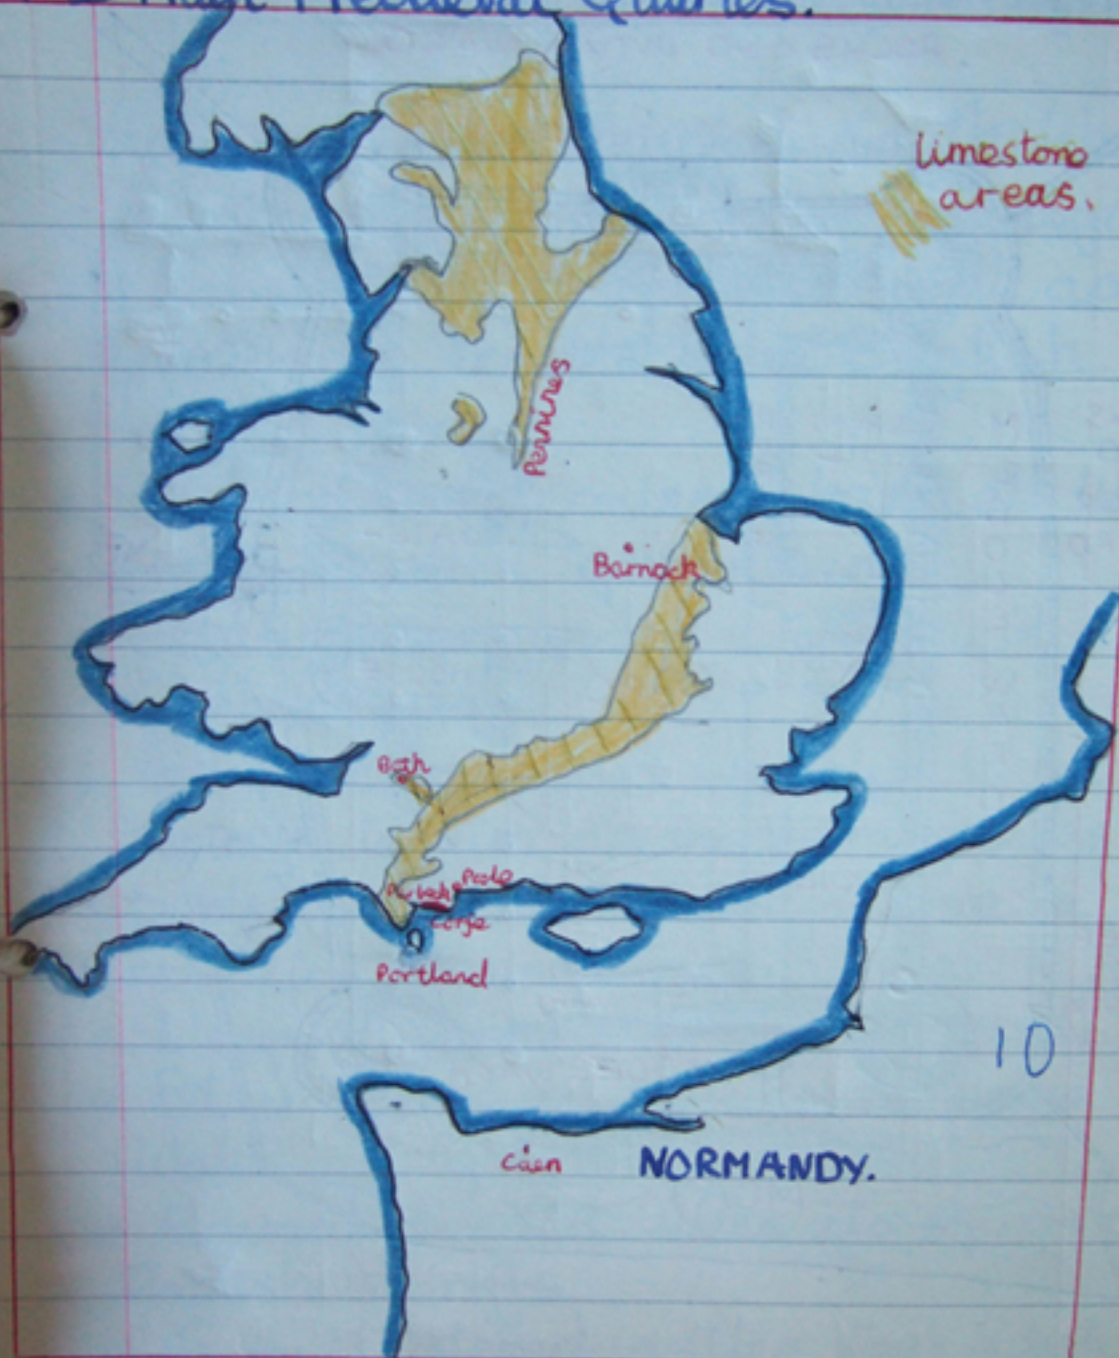 Main Medieval Quarries.
limestone
areas.
Pennines
Barnack
Bath
Purbeck Poole
Corfe
Portland
10
Caen
NORMANDY.